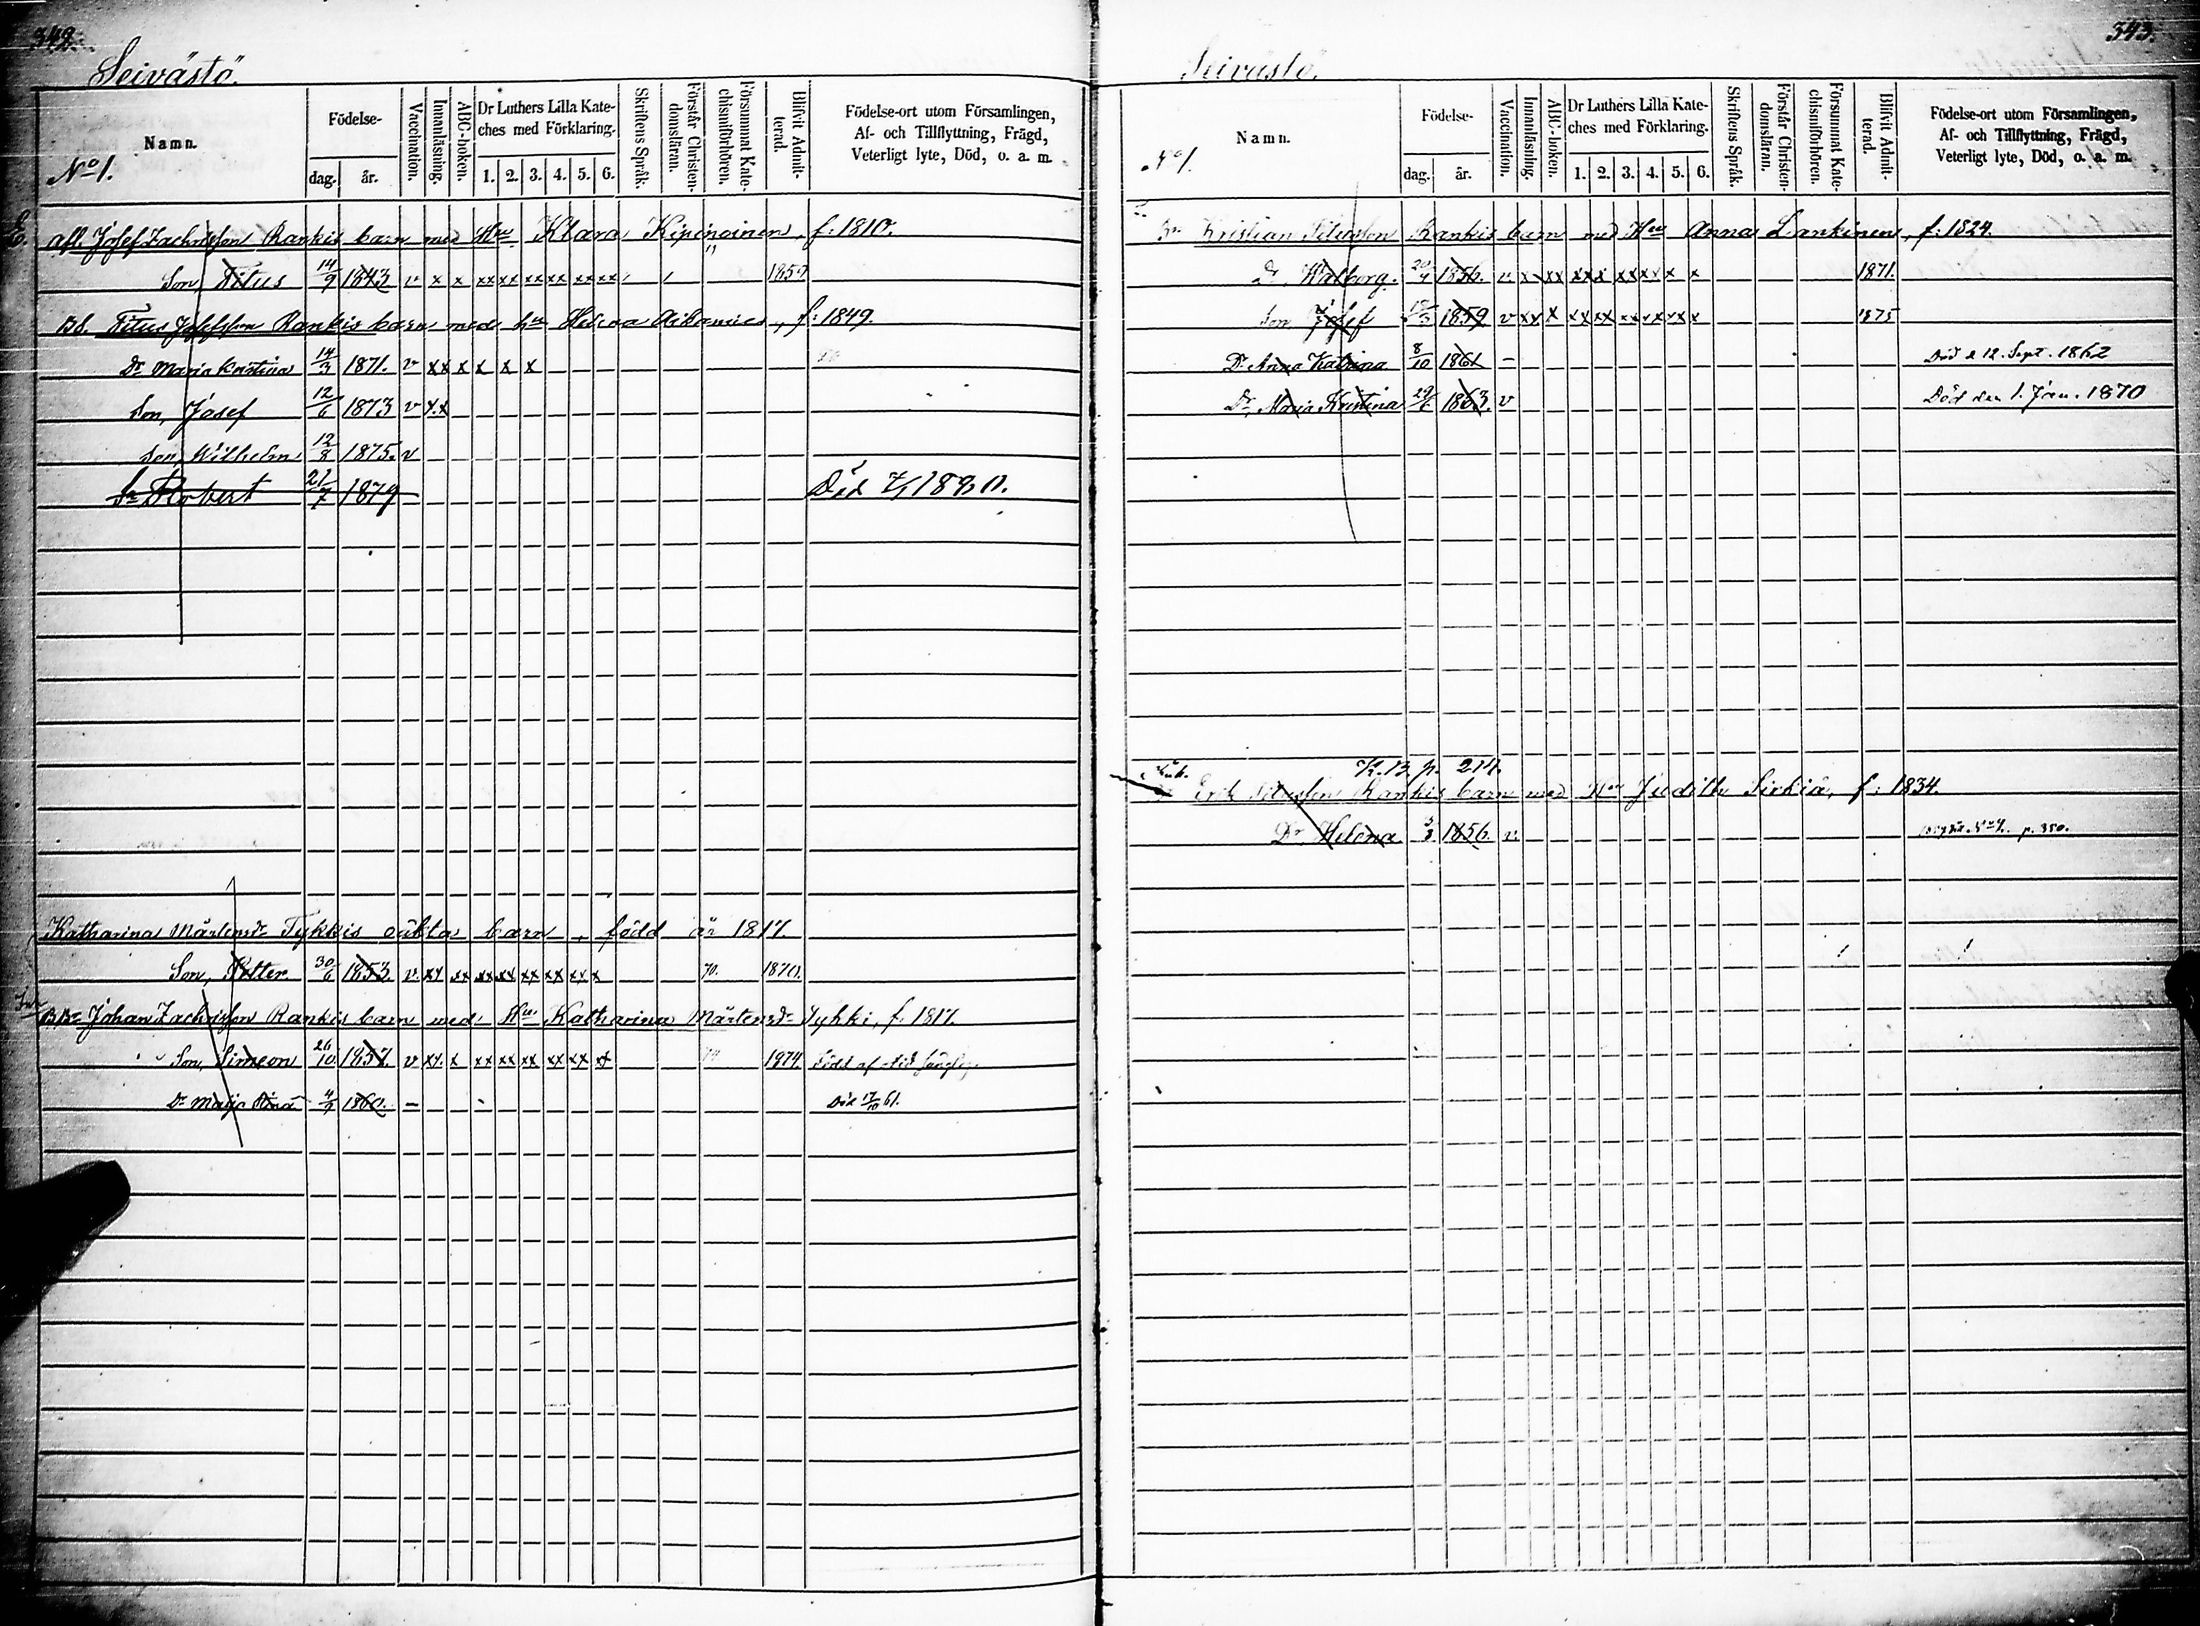 342.
Seivästö.
Namn.
No 1.
Födelse-
dag. år.
Vaccination.
Innanläsning.
ABC-boken.
Dr Luthers Lilla Kate-
ches med Förklaring.
1. 2. 3. 4. 5. 6.
Skriftens Språk.
Förstår Christen-
domsläran.
Försummat Kate-
chismiförhören.
Blifvit Admit-
terad.
Födelse-ort utom Församlingen,
Af- och Tillflyttning, Frägd,
Veterligt lyte, Död, o. a. m.
afl. Josef Zachrisson Rankis barn med Hu Klara Kipinoinen, f. 1810.
Son, Titus 14/9 1843 v x x xx xx xx xx xx xx 1859
Bd. Titus Josefsson Rankis barn med hu Helena, f. 1849.
Dr Maria Kristina 14/3 1871. v xx x x x x
Son, Josef 12/6 1873 v x.x
Son, Wilhelm 12/8 1875. v
Sn Robert 21/7 1879 Död
Katharina Mårtensdr Tykkis oäkta barn, född år 1817.
Son, Petter 30/6 1853. v. xx xx xx xx xx xx xx x 70. 1870.
Johan Zachrisson Rankis barn med Hu Katharina Mårtensdr Tyhki, f. 1817.
Son, Simeon 26/10 1857. v xx. x xx xx xx xx xx x 1874.
Dr Maija Stina 4/9 1860. – Död 17/10 61.
343.
Seivästö.
Namn.
No 1.
Födelse-
dag. år.
Vaccination.
Innanläsning.
ABC-boken.
Dr Luthers Lilla Kate-
ches med Förklaring.
1. 2. 3. 4. 5. 6.
Skriftens Språk.
Förstår Christen-
domsläran.
Försummat Kate-
chismiförhören.
Blifvit Admit-
terad.
Födelse-ort utom Församlingen,
Af- och Tillflyttning, Frägd,
Veterligt lyte, Död, o. a. m.
Kristian Petersson Rankis barn med Hu Anna Lankinen, f. 1824.
Dr Walborg. 1856. v. x xx xx x xx xx x x 1871.
Son, Josef 1859 v xx x xx xx xx xx xx x 1875
Dr Anna Katrina 8/10 1861 – Död d 12. Sept. 1862
Dr, Maria Kristina 29/6 1863. v Död den 1. Jan. 1870
K.B. p. 214.
Erik Petersson Rankis barn med Hu Judith Sirkiä, f. 1834.
Dr Helena 1856. v. p. 350.